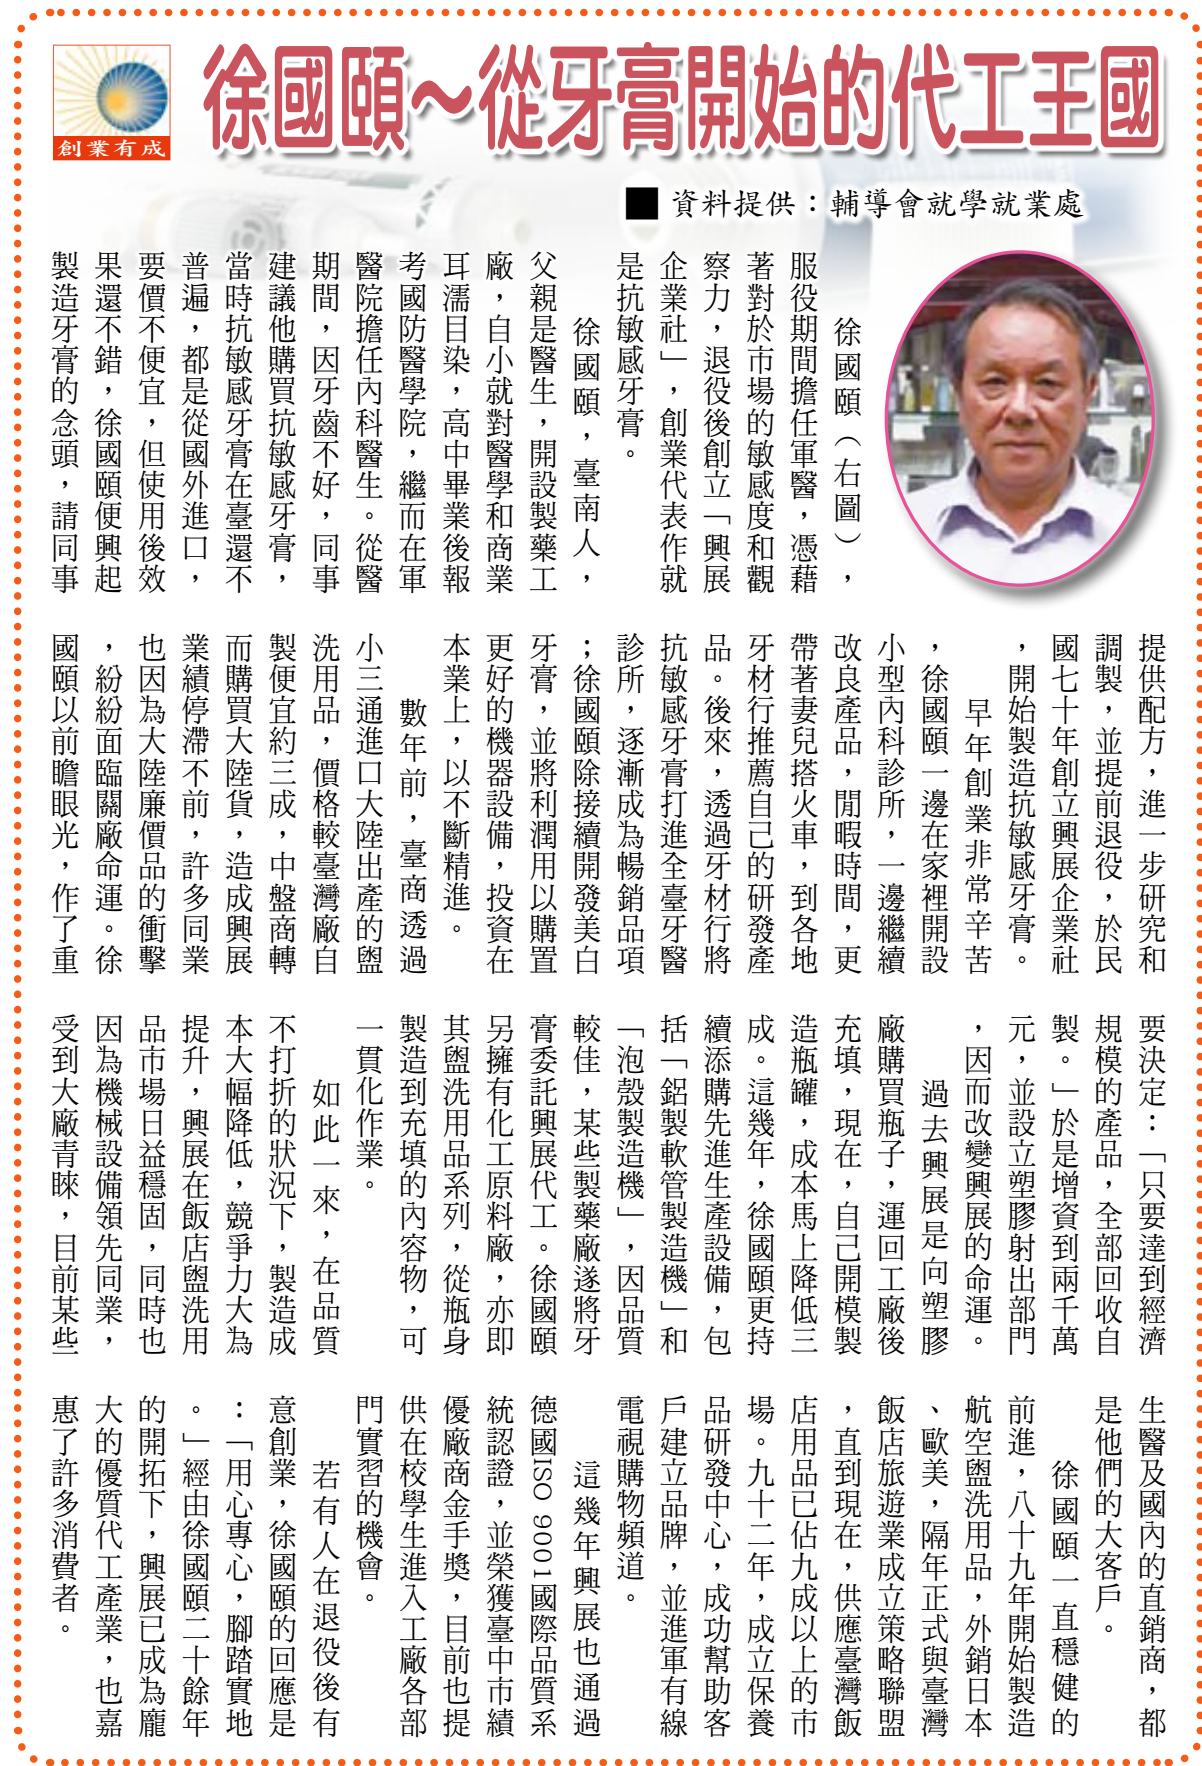 創業有成
徐國頤～從牙膏開始的代工王國
■資料提供：輔導會就學就業處
徐國頤（右圖），
服役期間擔任軍醫，憑藉
著對於市場的敏感度和觀
察力，退役後創立「興展
企業社」，創業代表作就
是抗敏感牙膏。
徐國頤，臺南人，
父親是醫生，開設製藥工
廠，自小就對醫學和商業
耳濡目染，高中畢業後報
考國防醫學院，繼而在軍
醫院擔任內科醫生。從醫
期間，因牙齒不好，同事
建議他購買抗敏感牙膏，
當時抗敏感牙膏在臺還不
普遍，都是從國外進口，
要價不便宜，但使用後效
果還不錯，徐國頤便興起
製造牙膏的念頭，請同事
提供配方，進一步研究和
調製，並提前退役，於民
國七十年創立興展企業社
，開始製造抗敏感牙膏。
早年創業非常辛苦
，徐國頤一邊在家裡開設
小型內科診所，一邊繼續
改良產品，閒暇時間，更
帶著妻兒搭火車，到各地
牙材行推薦自己的研發產
品。後來，透過牙材行將
抗敏感牙膏打進全臺牙醫
診所，逐漸成為暢銷品項
；徐國頤除接續開發美白
牙膏，並將利潤用以購置
更好的機器設備，投資在
本業上，以不斷精進。
數年前，臺商透過
小三通進口大陸出產的盥
洗用品，價格較臺灣廠自
製便宜約三成，中盤商轉
而購買大陸貨，造成興展
業績停滯不前，許多同業
也因為大陸廉價品的衝擊
，紛紛面臨關廠命運。徐
國頤以前瞻眼光，作了重
要決定：「只要達到經濟
規模的產品，全部回收自
製。」於是增資到兩千萬
元，並設立塑膠射出部門
，因而改變興展的命運。
過去興展是向塑膠
廠購買瓶子，運回工廠後
充填，現在，自己開模製
造瓶罐，成本馬上降低三
成。這幾年，徐國頤更持
續添購先進生產設備，包
括「鋁製軟管製造機」和
「泡殼製造機」，因品質
較佳，某些製藥廠遂將牙
膏委託興展代工。徐國頤
另擁有化工原料廠，亦即
其盥洗用品系列，從瓶身
製造到充填的內容物，可
一貫化作業。
如此一來，在品質
不打折的狀況下，製造成
本大幅降低，競爭力大為
提升，興展在飯店盥洗用
品市場日益穩固，同時也
因為機械設備領先同業，
受到大廠青睞，目前某些
生醫及國內的直銷商，都
是他們的大客戶。
徐國頤一直穩健的
前進，八十九年開始製造
航空盥洗用品，外銷日本
、歐美，隔年正式與臺灣
飯店旅遊業成立策略聯盟
，直到現在，供應臺灣飯
店用品已佔九成以上的市
場。九十二年，成立保養
品研發中心，成功幫助客
戶建立品牌，並進軍有線
電視購物頻道。
這幾年興展也通過
德國ISO 9001國際品質系
統認證，並榮獲臺中市績
優廠商金手獎，目前也提
供在校學生進入工廠各部
門實習的機會。
若有人在退役後有
意創業，徐國頤的回應是
：「用心專心，腳踏實地
。」經由徐國頤二十餘年
的開拓下，興展已成為龐
大的優質代工產業，也嘉
惠了許多消費者。